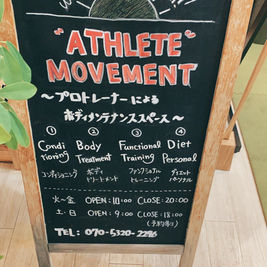 "ATHLETE"
MOVEMENT
～プロトレーナーによる
ボディメンテナンススペース～
① ② ③ ④
Condi Body Functional Diet
tioning Treatment Training Personal
コンディショニング ボディ ファンクショナル ダイエット
トリートメント トレーニング パーソナル
火～金 OPEN:10:00 CLOSE:20:00
土・日 OPEN:9:00 CLOSE:18:00
(予約制)
TEL: 070-5320-2296